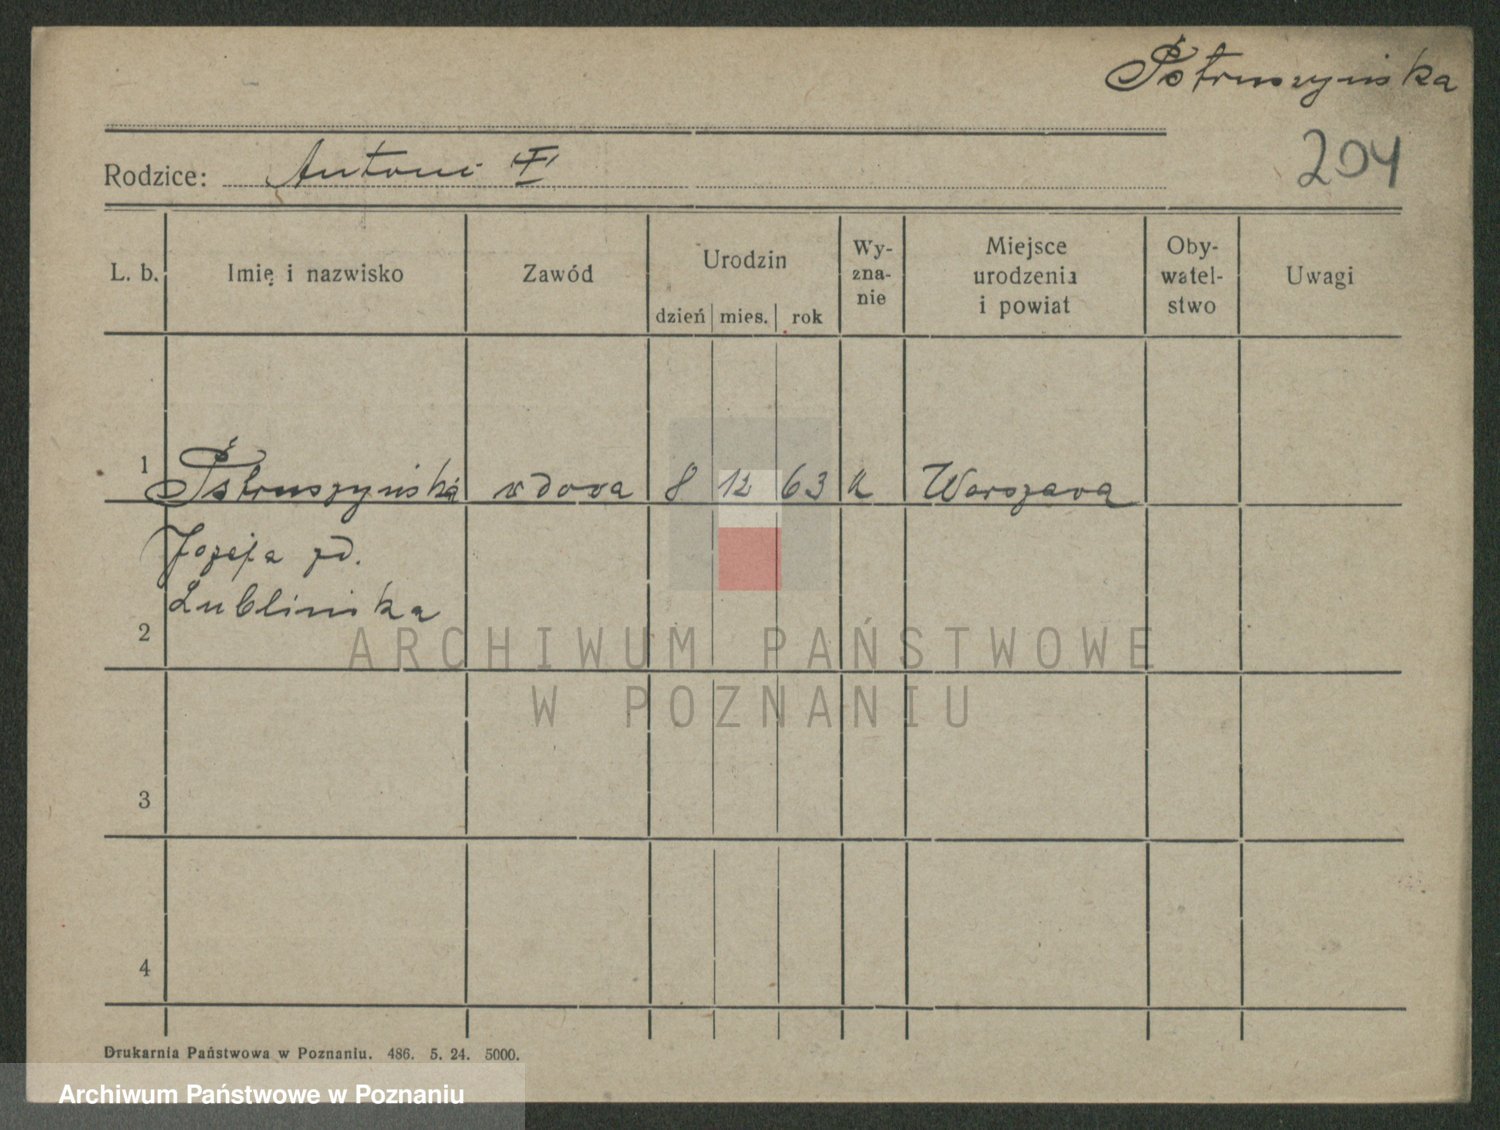 Pstruszyńska
Rodzice: Antoni
204
L. b. Imię i nazwisko Zawód Urodzin dzień mies. rok Wy-zna-nie Miejsce urodzenia i powiat Oby-watel-stwo Uwagi
1 Pstruszyńska wdowa 8 12 63 k Warszawa
Józefa zd.
Lublińska
2
3
4
ARCHIWUM PAŃSTWOWE
W POZNANIU
Drukarnia Państwowa w Poznaniu. 486. 5. 24. 5000.
Archiwum Państwowe w Poznaniu